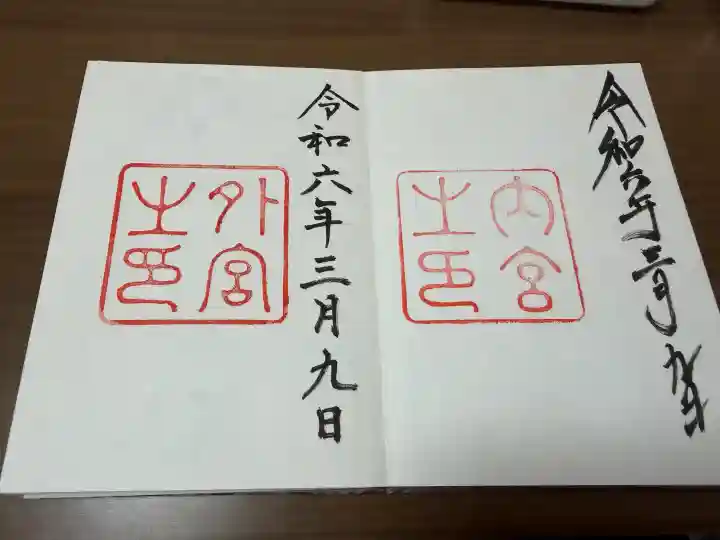 令和六年三月九日
内宮
之印
令和六年三月九日
外宮
之印